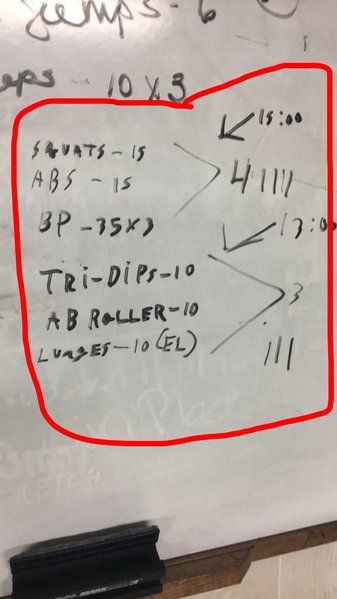 jumps - 6
eps - 10 x 3
15:00
SQUATS - 15
ABS - 15
4 ||||
BP - 35 x 3
13:00
TRI-DIPS - 10
AB ROLLER - 10
3
LUNGES - 10 (EL)
|||
Place